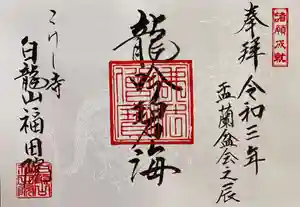 諸願成就
奉拝 令和三年
盂蘭盆会之辰
龍吟碧海
佛法僧寶
こけし寺
白龍山福田院